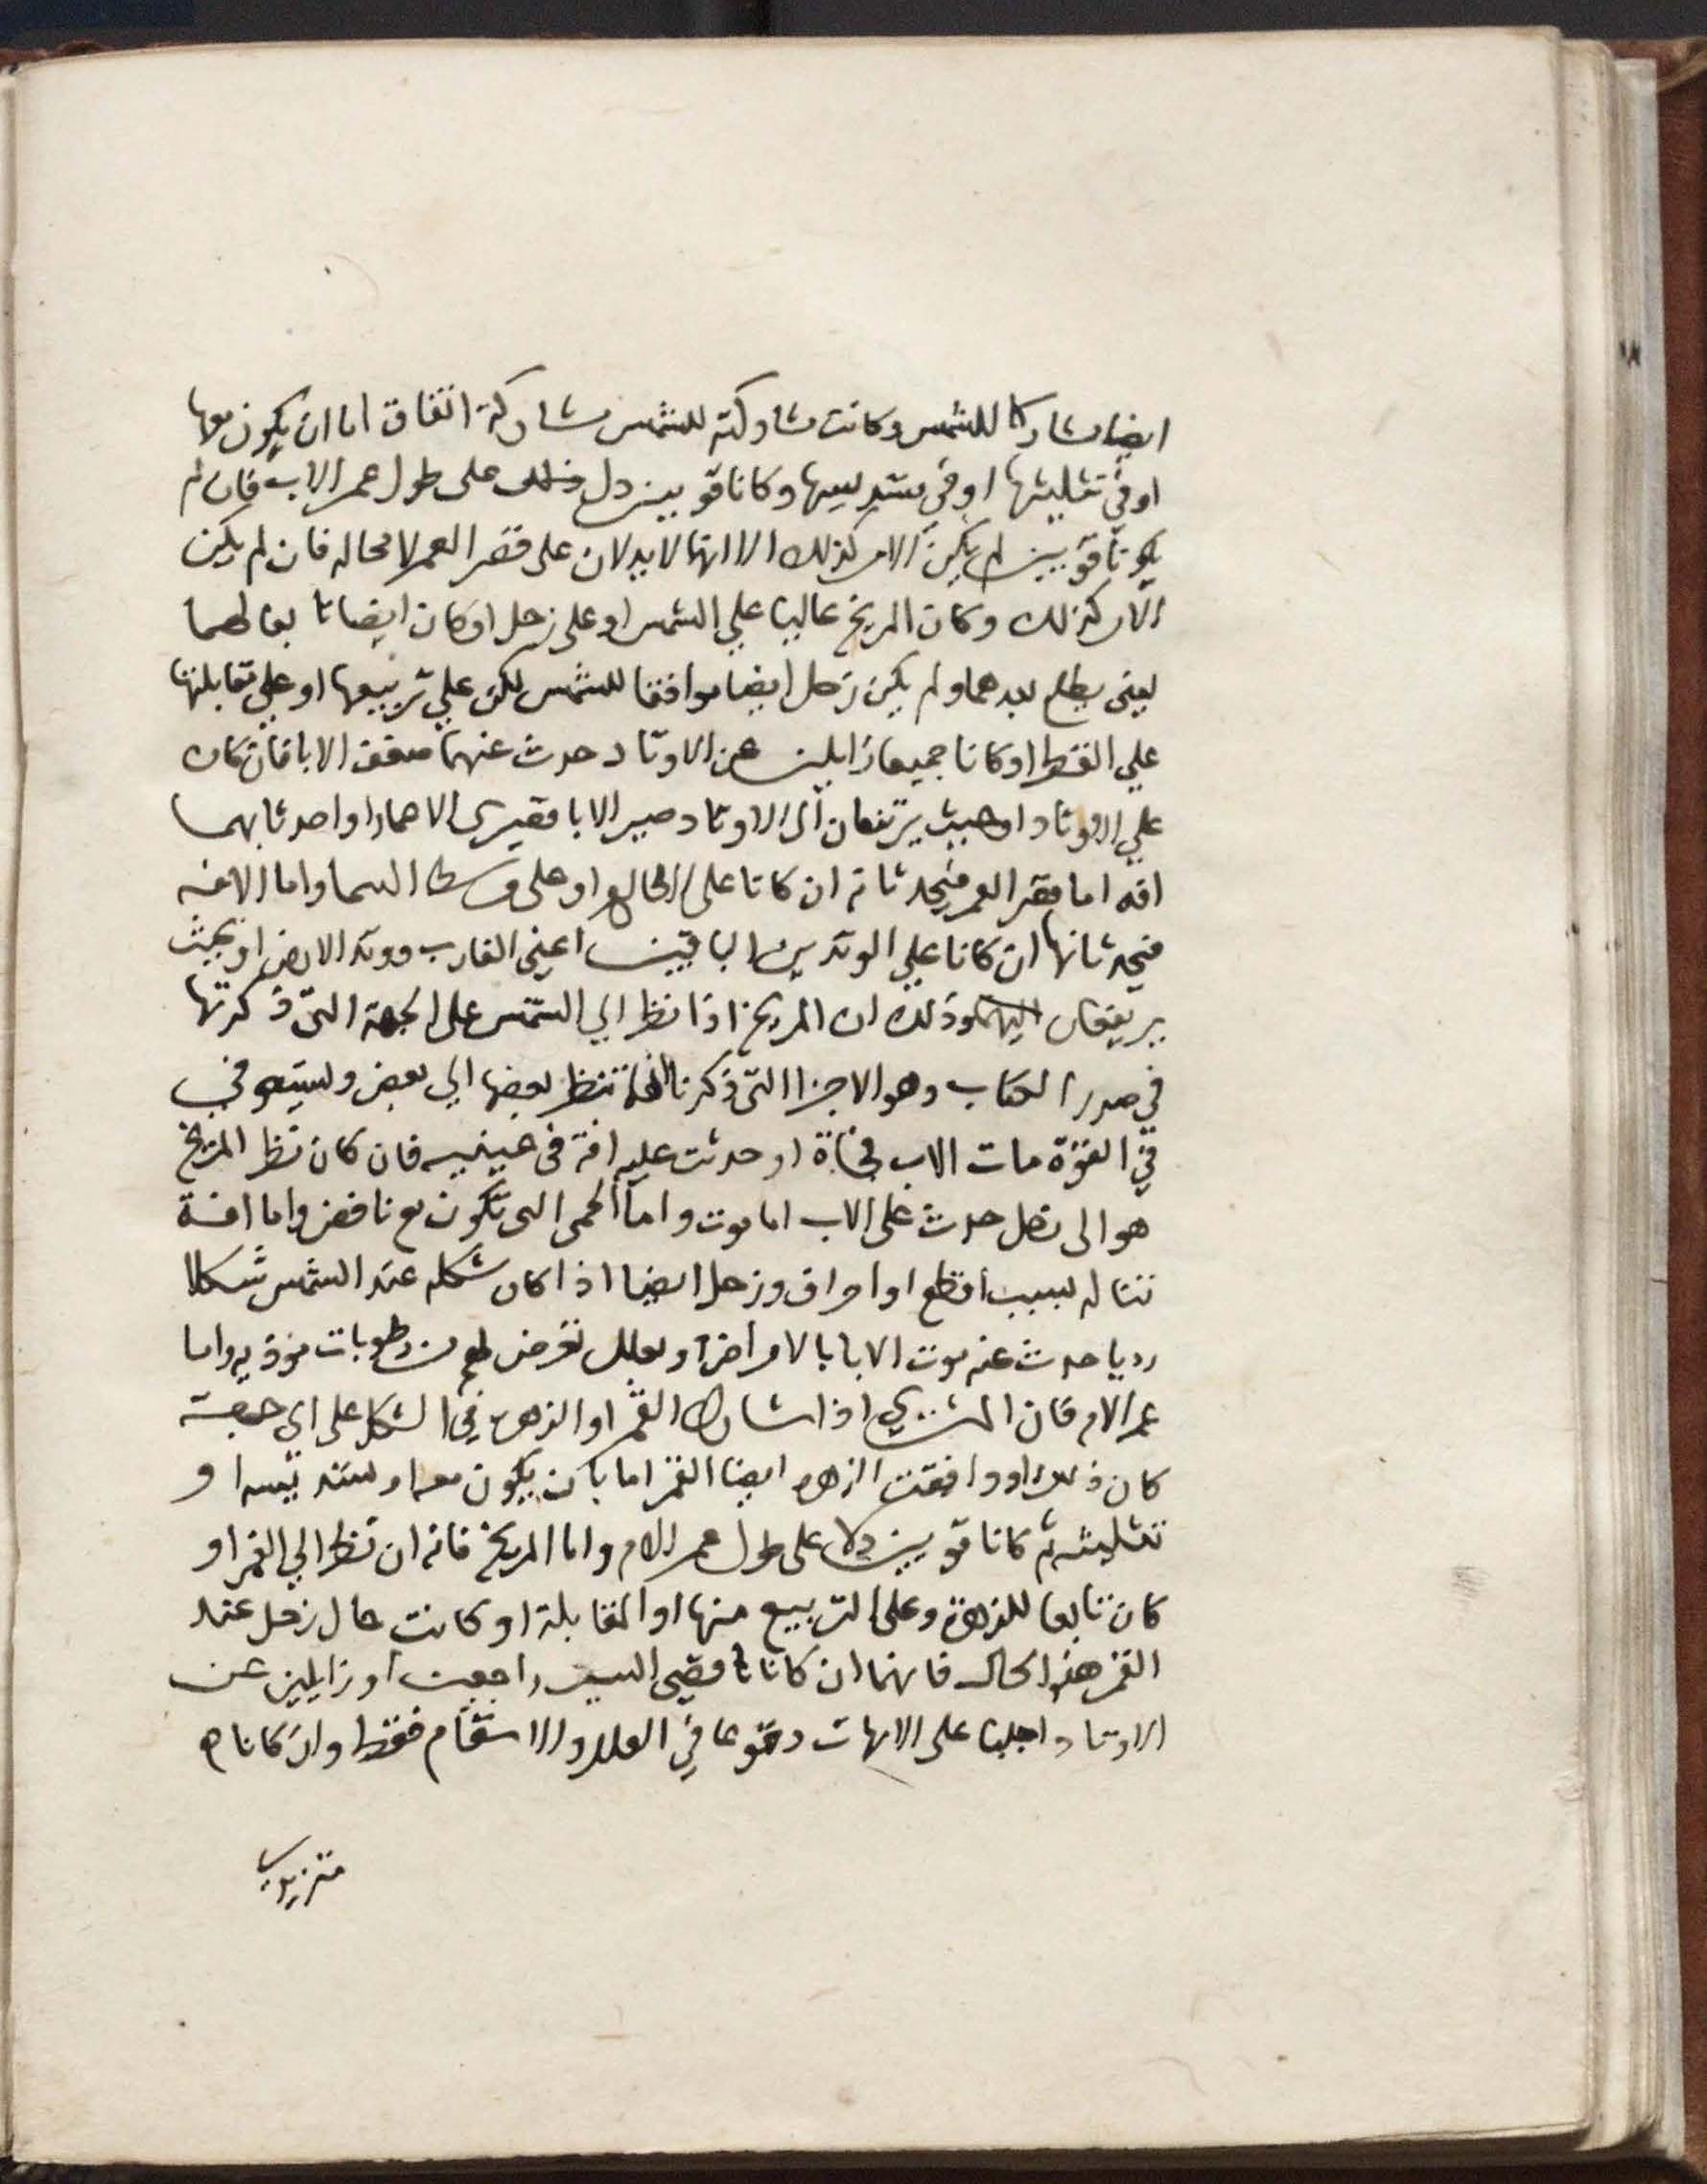 ايضا مشاركا للشمس وكانت مشاركته للشمس مشاركة اتفاق اما ان يكون معها
او في تثليثها او في تسديسها وكانا قويين دل ذلك على طول عمر الاب فان لم
يكونا قويين لم يكن الامر كذلك الا انهما لا يدلان على قصر العمر لا محاله فان لم يكن
الامر كذلك وكان المريخ عاليا علي الشمس او على زحل او كان ايضا تابعا لهما
يعني يطلع بعدهما ولم يكن زحل ايضا موافقا للشمس لكن علي تربيعها او علي مقابلتها
علي القطر او كانا جميعا زايلين عن الاوتاد حدث عنهما ضعف الابا فان كان
علي الاوتاد او حيث يرتفعان الى الاوتاد صير الابا قصيري الاعمار او احدثا بهما
افه اما قصر العمر فيحدثانه ان كانا على الطالع او على وسط السما واما الافه
فيحدثانها ان كانا علي الوتدين الباقيين اعني الغارب ووتد الارض او بحيث
يرتفعان اليهما وذلك ان المريخ اذا نظر الي الشمس على الجهة التى ذكرتها
في صدر الكتاب وهو الاجزا التى ذكرنا انها تنظر بعضها الي بعض ويستوي
في القوة مات الاب فجاة او حدثت عليه افة فى عينيه فان كان نظر المريخ
هو الى زحل حدث على الاب اما موت واما الحمى التى تكون مع نافض واما افة
تناله بسبب قطع او احراق وزحل ايضا اذا كان شكله عند الشمس شكلا
رديا حدث عنه موت الابا بالامراض او بعلل تعرض لهم من رطوبات موذيه واما
عمر الام فان المشتري اذا شارك القمر او الزهرة في الشكل على اي جهة
كان ذلك او وافقت الزهره ايضا القمر اما بان يكون معه او تسديسه او
تثليثه ثم كانا قويين دلا على طول عمر الام واما المريخ فانه ان نظر الي القمر او
كان تابعا للزهرة وعلى التربيع منها او المقابلة او كانت حال زحل عند
القمر هذه الحال فانهما ان كانا ناقصي السير راجعين او زايلين عن
الاوتاد اجلبا على الامهات وقوعا في العلل والاسقام فقط وان كانا
متزيدين